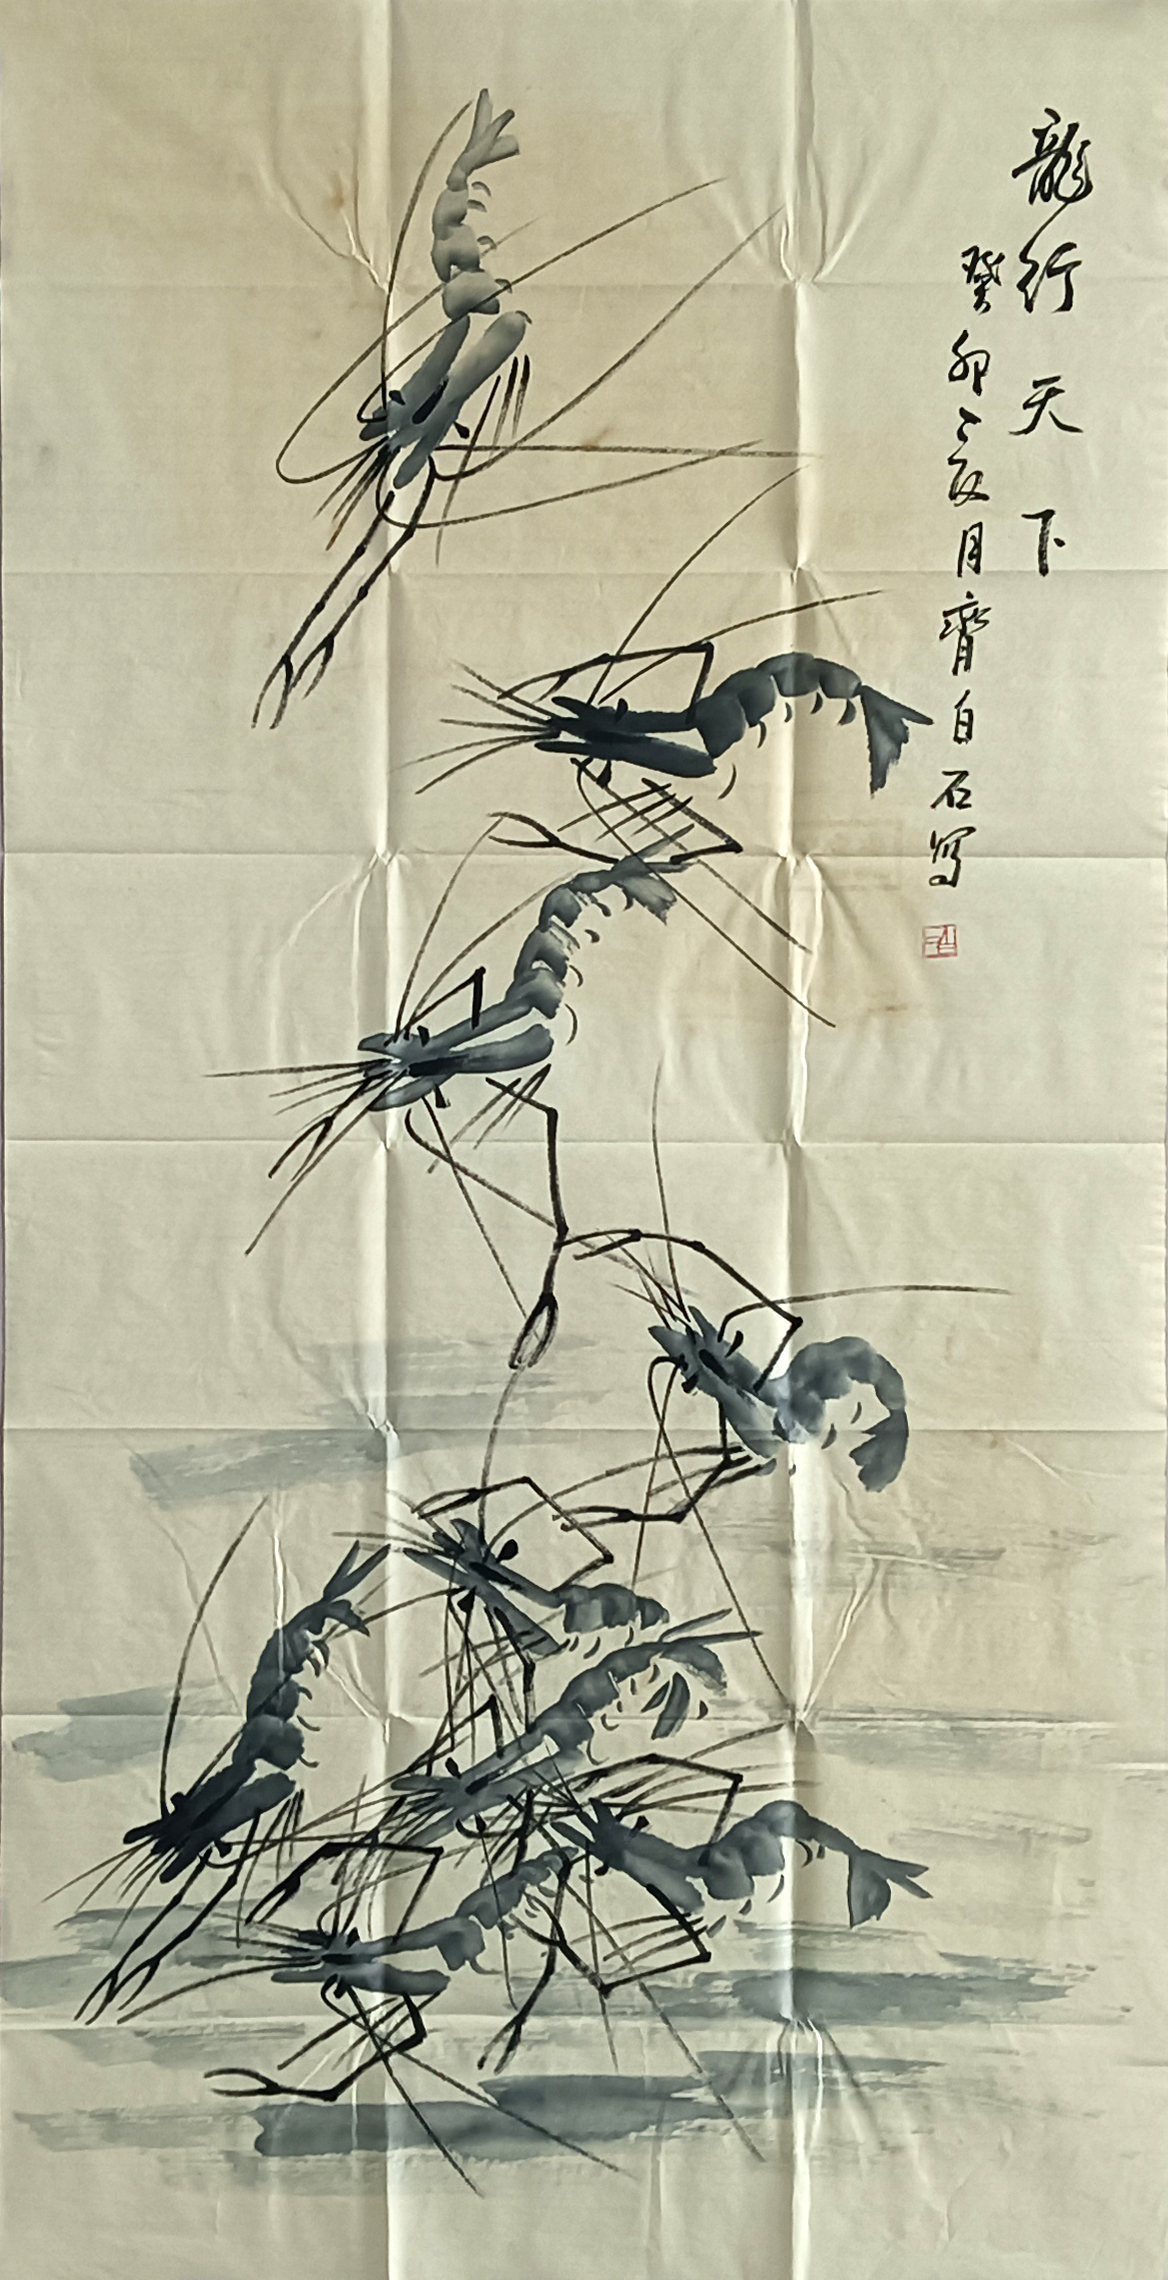 龍行天下
癸卯二月齊白石寫